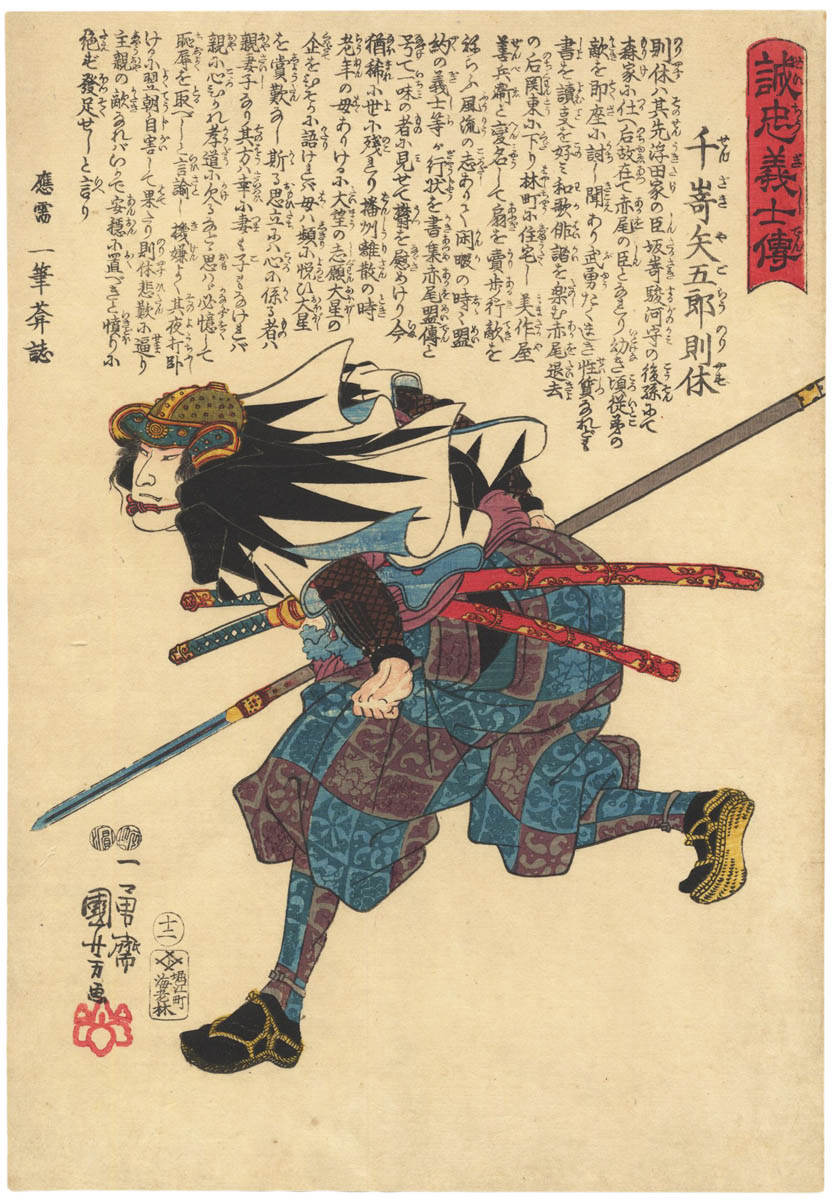 誠忠義士傳
せいちうぎしでん
千嵜矢五郎則休
せんざきやごらうのりやす
則休ハ其先浮田家の臣坂嵜駿河守の後孫にて
森家に仕へ后故在て赤尾の臣となれり幼き頃従弟の
敵を即座に討し聞あり武勇たくましき性質なれども
書を讀事を好ミ和歌俳諧を楽む赤尾退去
の后関東に下り林町に住宅し美作屋
善兵衞と変名して扇を賣歩行敵を
ねらふ風流の志ありて閑暇の時ミ盟
約の義士等が行状を書集赤尾盟傳と
号て一味の者に見せて欝を慰めけり今
猶稀に世に残れり播州離散の時
老年の母ありけるに大望の志願大星の
企をひそかに語けれバ母ハ頻に悦ひ大星
を賞歎なし斯る思立に心に係る者ハ
親妻子なり其方ハ幸に妻も子もなけれバ
親に心ひかれ孝道にかけなんと思ハゞ必憶して
恥辱を取べしと言諭し機嫌よく其夜打卧
けるに翌朝自害して果たり則休悲歎に逼り
主親の敵なれバいかで安穏に置べきと憤りに
絶ず發足せしと言り
應需 一筆葊誌
一勇齋
國芳画
十二
堀江町
海老林